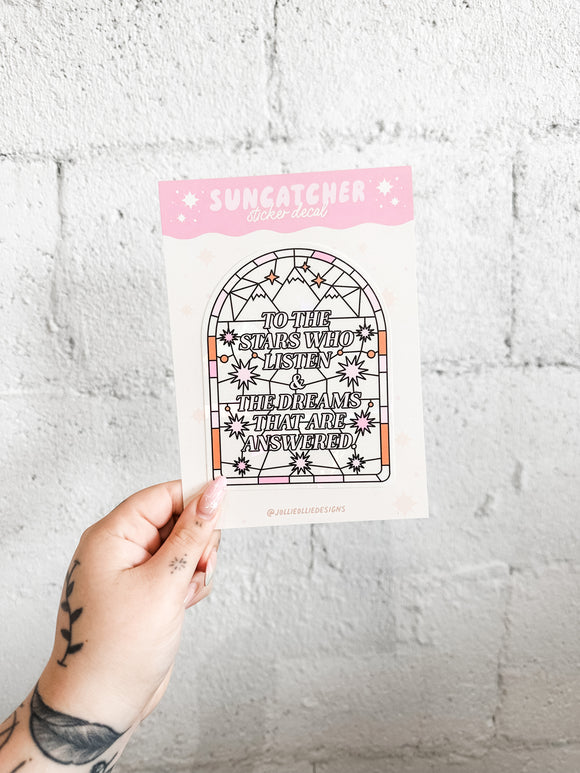 SUNCATCHER
sticker decal
TO THE
STARS WHO
LISTEN
&
THE DREAMS
THAT ARE
ANSWERED!
@JOLLIEOLLIEDESIGNS